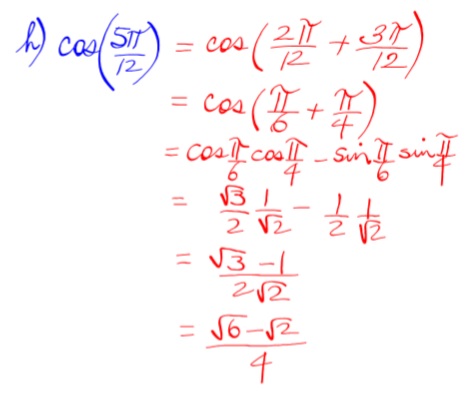 h) cos(5π/12) = cos(2π/12 + 3π/12)
= cos(π/6 + π/4)
= cos π/6 cos π/4 - sin π/6 sin π/4
= √3/2 1/√2 - 1/2 1/√2
= (√3 - 1)/(2√2)
= (√6 - √2)/4